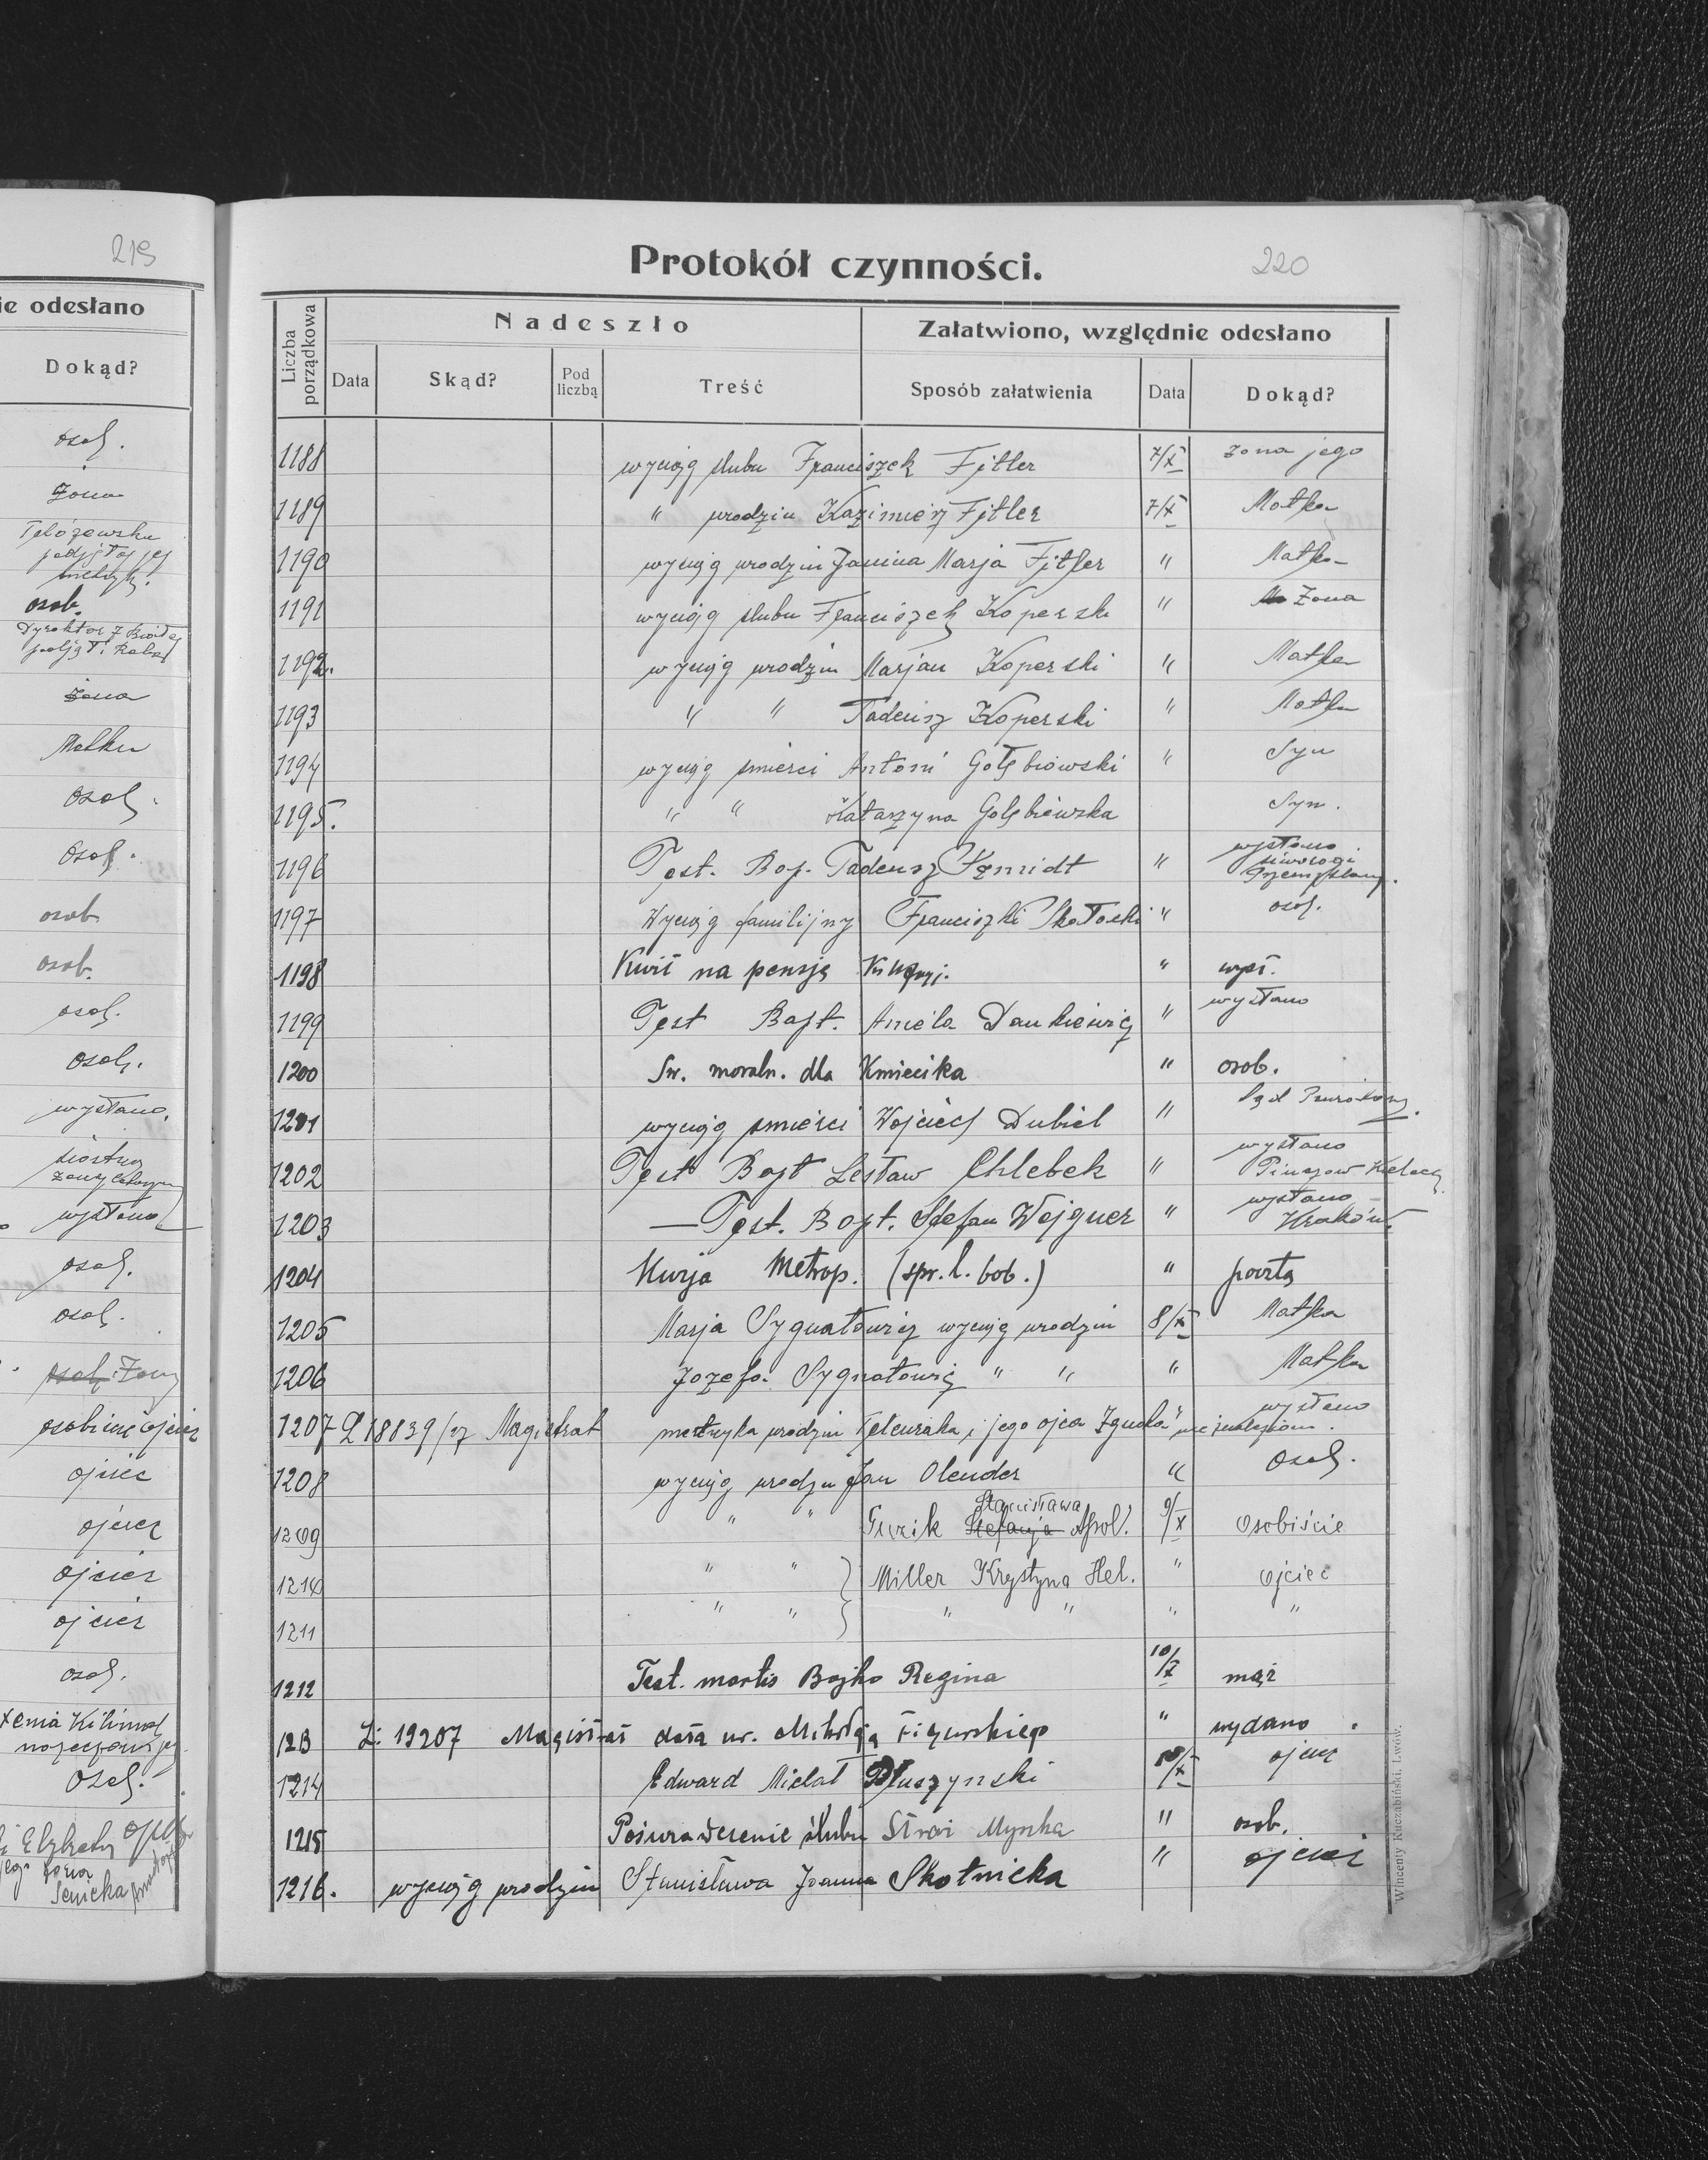 219
ie odesłano
Dokąd?
osob.
żona
osob.
żona
Matka
osob.
osob.
osob
osob.
osob.
osob.
wysłano.
siostra
wysłano
osob.
osob.
osobiście ojciec
ojciec
ojciec
ojciec
ojciec
osob.
osob.
Senicka
Protokół czynności.
220
Liczba porządkowa
Nadeszło
Załatwiono, względnie odesłano
Data
Skąd?
Pod liczbą
Treść
Sposób załatwienia
Data
Dokąd?
1188 wyciąg ślubu Franciszek Fitler 7/X żona jego
1189 " urodzin Kazimierz Fitler 7/X Matka
1190 wyciąg urodzin Janina Marja Fitler " Matka
1191 wyciąg ślubu Franciszek Koperski " Żona
1192. wyciąg urodzin Marjan Koperski " Matka
1193 " " Tadeusz Koperski " Matka
1194 wyciąg śmierci Antoni Gołębiowski " Syn
1195. " " Katarzyna Gołębiewska Syn.
1196 Test. Bap. Tadeusz Szmidt " wysłano
1197 Wyciąg familijny Franciszki " osob.
1198 Kwit na pensję " wysł.
1199 Test Bapt. Aniela Dankiewicz " wysłano
1200 Św. moraln. dla Kmiecika " osob.
1201 wyciąg śmierci Wojciech Dubiel " Sąd
1202 Test Bapt Lesław Chlebek " wysłano
1203 — Test. Bapt. Stefan Wejgner " wysłano
Kraków
1204 Kurja Metrop. (spr. l. bob.) " pocztą
1205 Marja Sygnatowicz wyciąg urodzin 8/X Matka
1206 Józefa Sygnatowicz " " " Matka
1207 L 18839/27 Magistrat metryka urodzin i jego ojca wysłano
1208 wyciąg urodzin Jan Olender " osob.
Stanisława
1209 " " Guzik Stefanja Apol. 9/X Osobiście
1210 " " Miller Krystyna Hel. " ojciec
1211 " " " " " "
1212 Test. mortis Bojko Regina 10/X mąż
1213 L: 19207 Magistrat data ur. " wydano.
1214 Edward Michał Płuszynski 10/X ojciec
1215 Poświadczenie ślubu Myszka " osob.
1216. wyciąg urodzin Stanisława Joanna Skotnicka " ojciec
Wincenty Kuczabiński, Lwów.